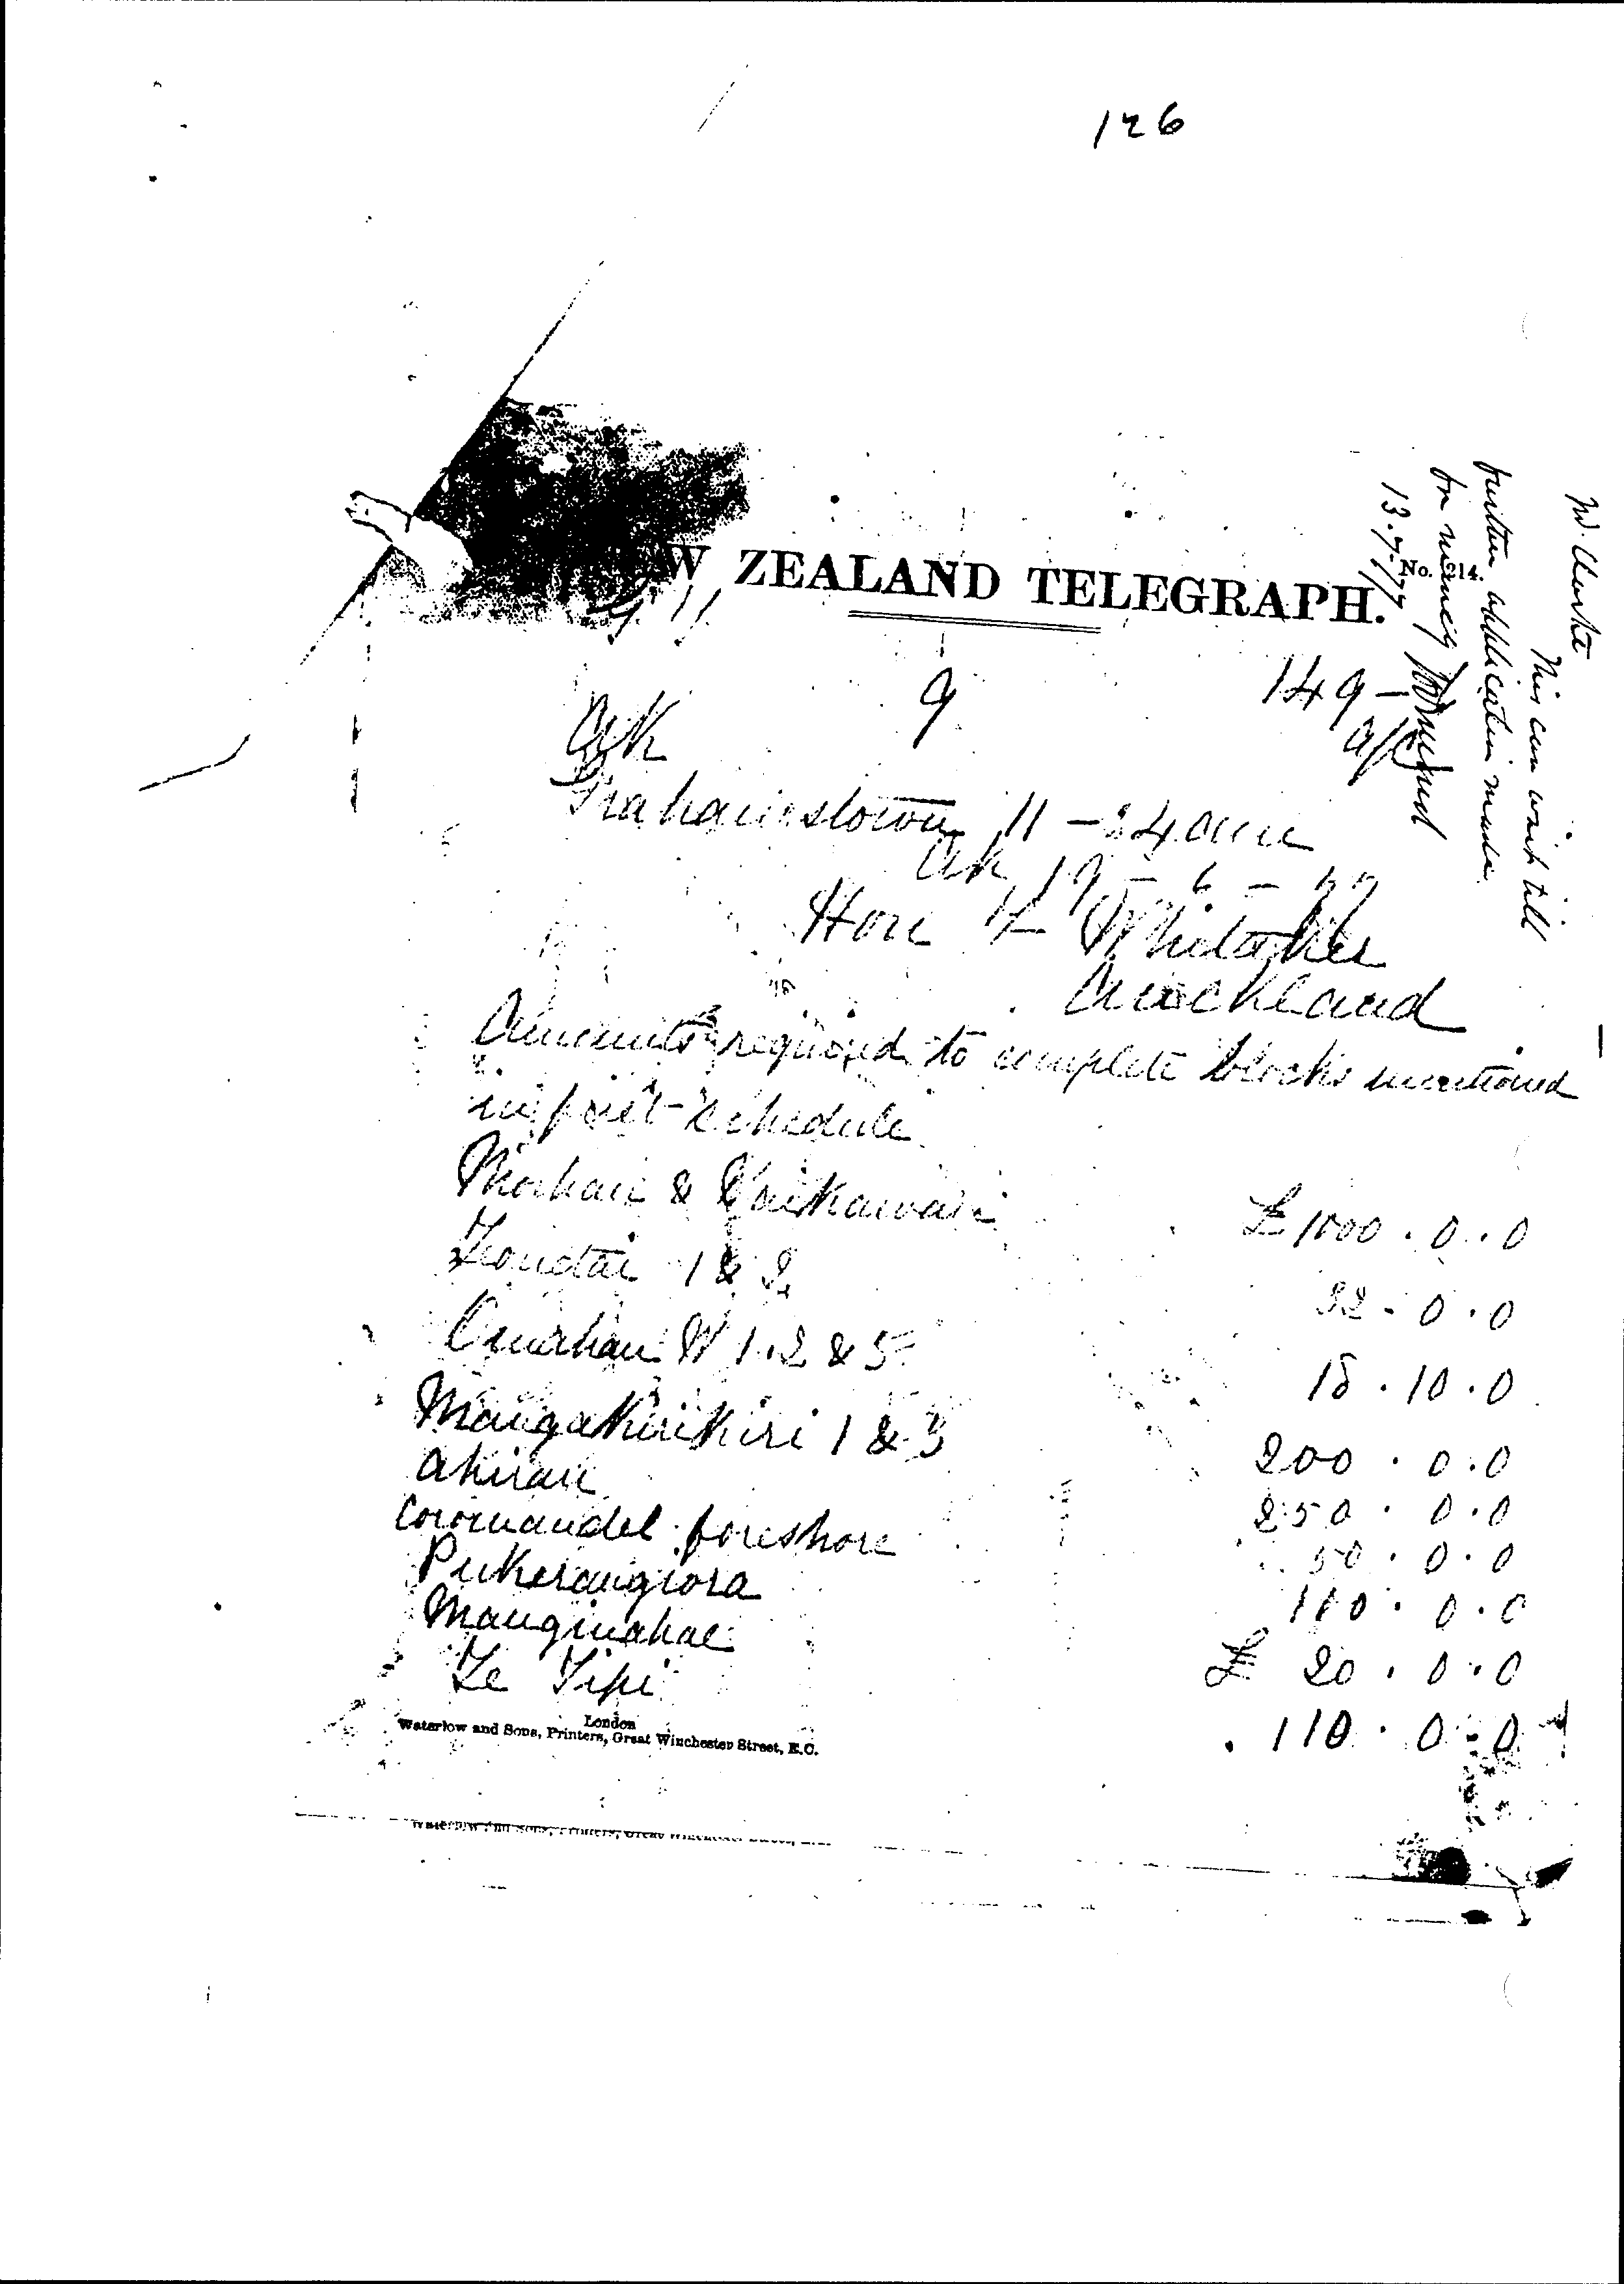 126
W ZEALAND TELEGRAPH.
No. 214.
Mr. Clarke
This can wait till
further application made
for money
13.7.77
9
149-
Ak
Grahamstown 11-34 am
Ak 19-6-77
Hon F Whitaker
Auckland
Amounts required to complete blocks mentioned
in first schedule
Moehau & Waikawau £1000.0.0
1 & 2 32.0.0
Omahu W 1.2 & 5 18.10.0
Maungakirikiri 1 & 3 200.0.0
250.0.0
Coromandel foreshore 50.0.0
Pukerangiora 110.0.0
£ 20.0.0
Te Tipi 110.0.0
London
Waterlow and Sons, Printers, Great Winchester Street, E.C.
Waterlow and Sons, Printers, Great